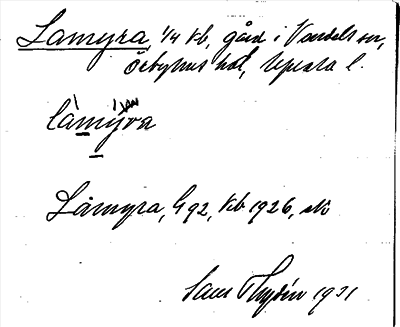 Lamyra, 1/4 kb, gård i Vendels sn,
Örbyhus hd, Uppsala l.
lamyra
Låmyra, G 92, kb 1926, sk
1931